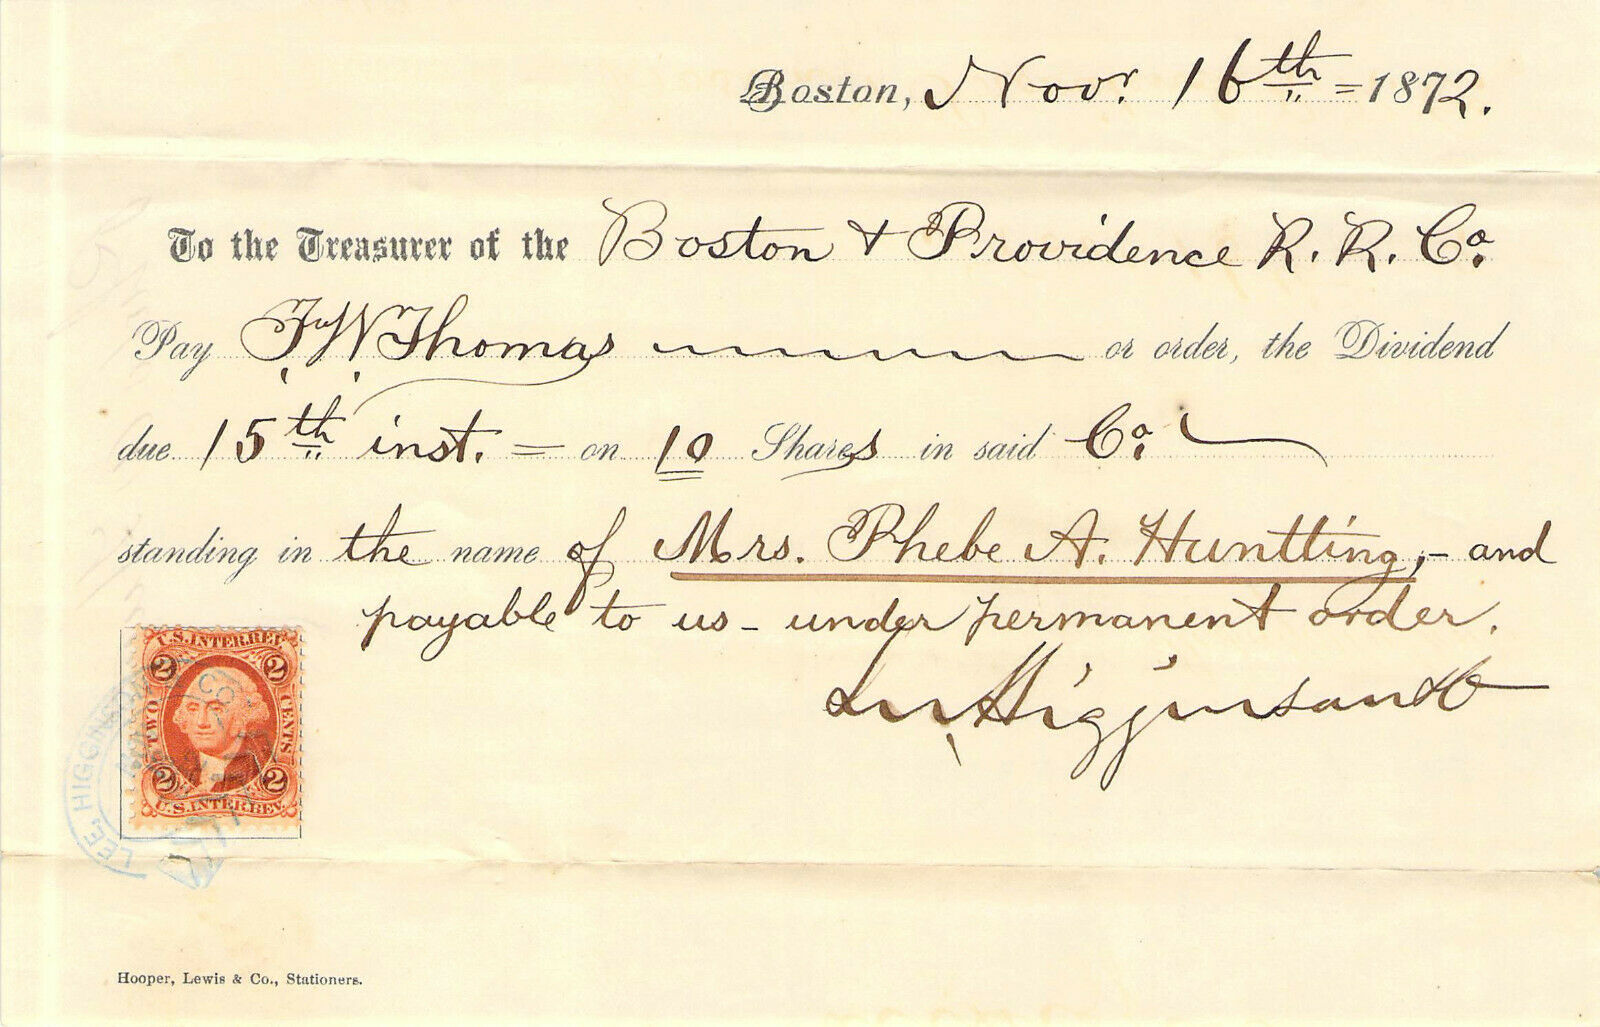 Boston, Novr. 16th = 1872.
To the Treasurer of the Boston & Providence R. R. Co.
Pay F. W. Thomas or order, the Dividend
due 15th inst. = on 10 Shares in said Co.
standing in the name of Mrs. Phebe A. Huntting, - and
payable to us - under permanent order.
Lee, Higginson & Co
U.S. INTER. REV.
2 2
TWO CENTS
2 2
U.S. INTER. REV.
LEE, HIGGINSON & CO
Hooper, Lewis & Co., Stationers.